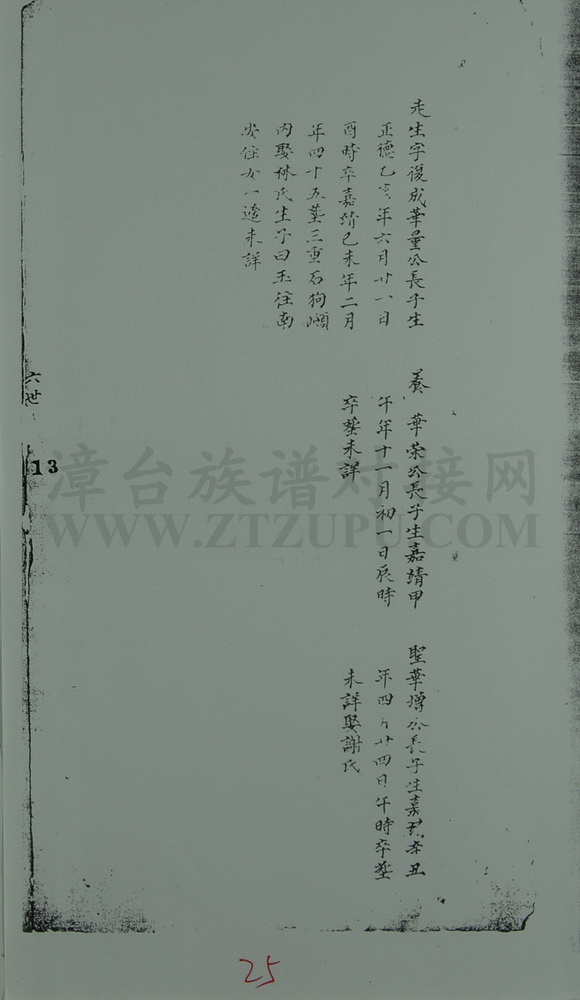 走生字復成華量公長子生
正德乙亥年六月廿八日
酉時卒嘉靖己未年二月
年四十五葬三重石狗
內娶林氏生子曰玉往南
安住女一適未詳
養 華榮公長子生嘉靖甲
午年十一月初一日辰時
卒塟未詳
聖華增公長子生嘉 辛丑
年四月廿四日午時卒塟
未詳娶謝氏
六世
13
漳台族谱对接网
WWW.ZTZUPU.COM
25